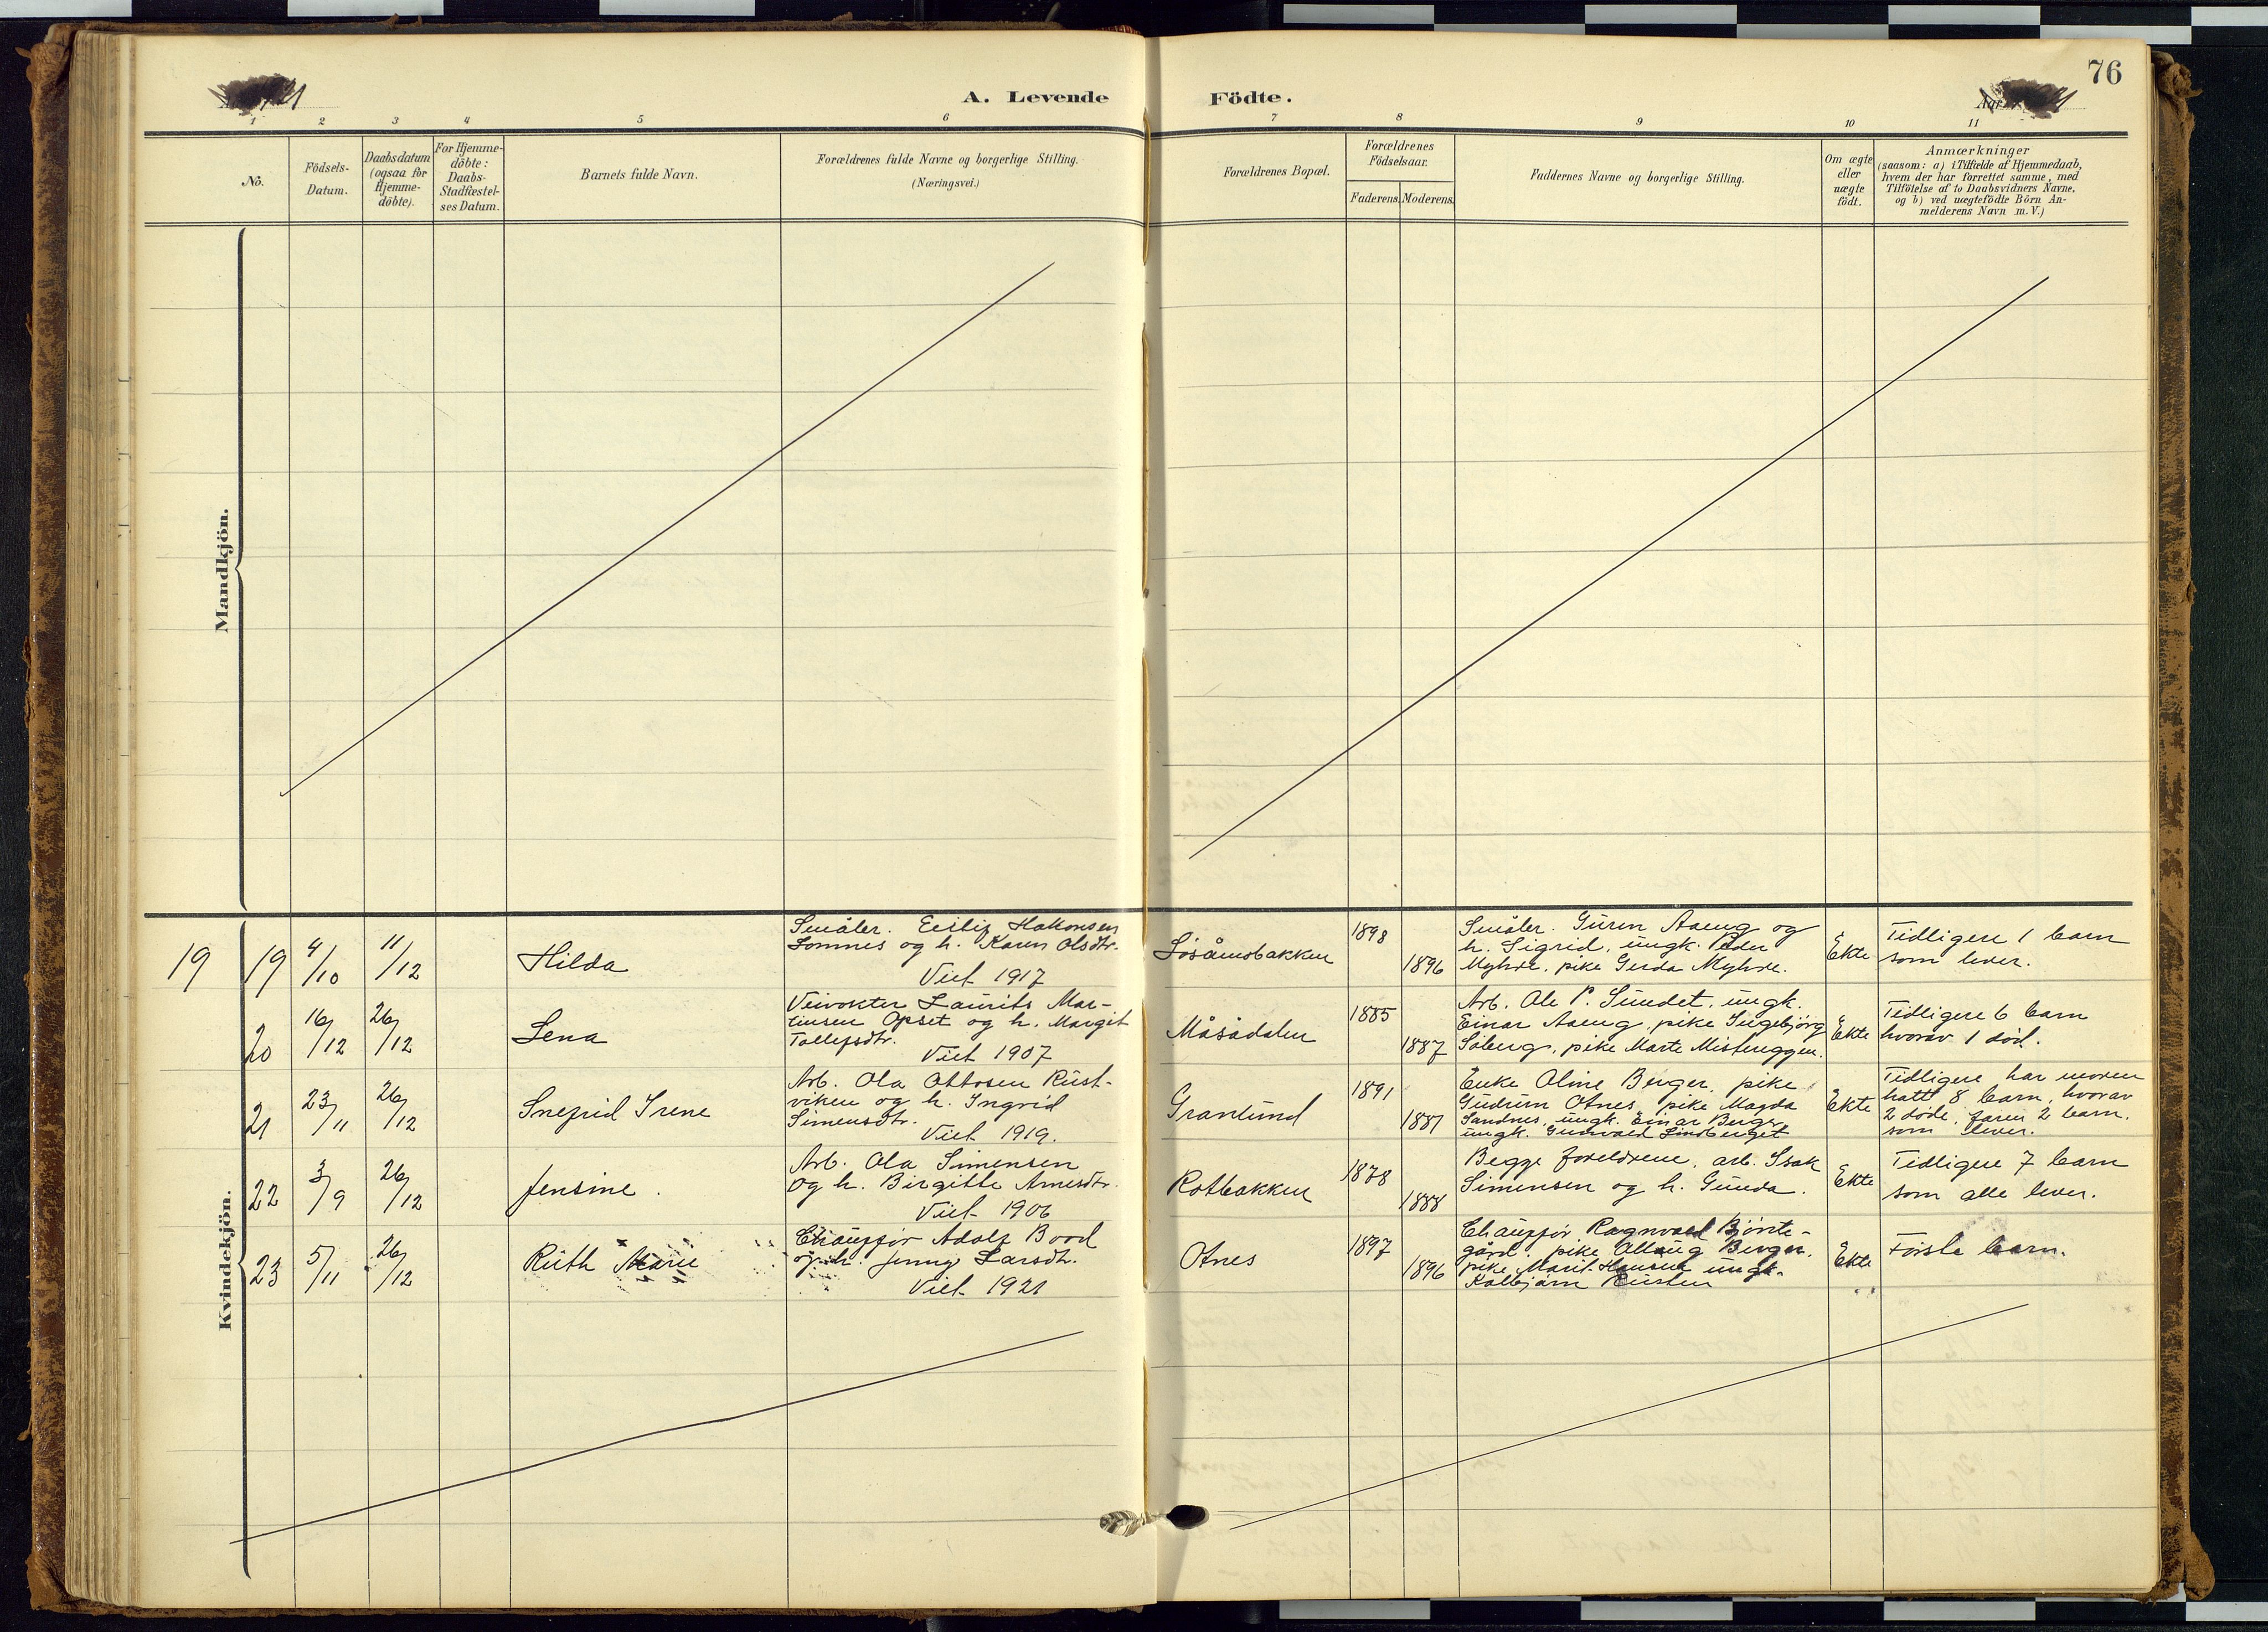 76
A. Levende Födte.
1 2 3 4 5 6 7 8 9 10 11
No.
Födsels-
Datum.
Daabsdatum
(ogsaa for
Hjemme-
döbte).
For Hjemme-
döbte:
Daabs-
Stadfæstel-
ses Datum.
Barnets fulde Navn.
Forældrenes fulde Navne og borgerlige Stilling.
(Næringsvei.)
Forældrenes Bopæl.
Forældrenes
Födselsaar.
Faderens. Moderens.
Faddernes Navne og borgerlige Stilling.
Om ægte
eller
uægte
födt.
Anmærkninger
(saasom: a) i Tilfælde af Hjemmedaab,
hvem der har forrettet samme, med
Tilföielse af to Daabsvidners Navne,
og b) ved uægtefödte Börn An-
melderens Navn m.V.)
Mandkjön.
Kvindekjön.
19 19 4/10 11/12 Hilda
Hakonsen
og h. Karen Olsdtr.
Viet 1917
1898
1896
og
h. Sigrid, ungk. Peder
Myhre, pike Gerda Myhre.
Ekte
Tidligere 1 barn
som lever.
20 16/12 26/12 Lena
Veivokter Laurits Mar-
tinsen Opset og h. Margit
Tollefsdtr.
Viet 1907
Måsådalen
1885
1887
Arb. Ole P. Sundet, ungk.
Einar Aaeng, pike Ingebjørg
Soberg, pike Marte Mistereggen.
Ekte
Tidligere 6 barn
hvorav 1 død.
21 23/11 26/12 Snefrid Irene
Arb. Ola Ottosen Rust-
viken og h. Ingrid
Simensdtr.
Viet 1919.
Granlund
1891
1881
Enke Oline Berger, pike
Gudrun Otnes, pike Magda
Sandnes, ungk. Einar Berger
ungk. Gunvald Lindberget
Ekte
Tidligere har moren
hatt 8 barn, hvorav
2 døde, faren 2 barn.
som lever.
22 3/9 26/12 Jensine.
Arb. Ola Simensen
og h. Birgitte Arnesdtr.
Viet 1906
Rotbakken
1878
1888
Begge foreldrene, arb. Isak
Simensen og h. Gunda.
Ekte
Tidligere 7 barn
som alle lever.
23 5/11 26/12 Ruth Marie
Chauffør Adolf Bood
og h. Jenny Larsdtr.
Viet 1921
Otnes
1897
1896
Chauffør Ragnvald Bjønte-
gård, pike Allaug Berger,
pike Marit Hansen ungk.
Kolbjørn
Ekte
Første barn.